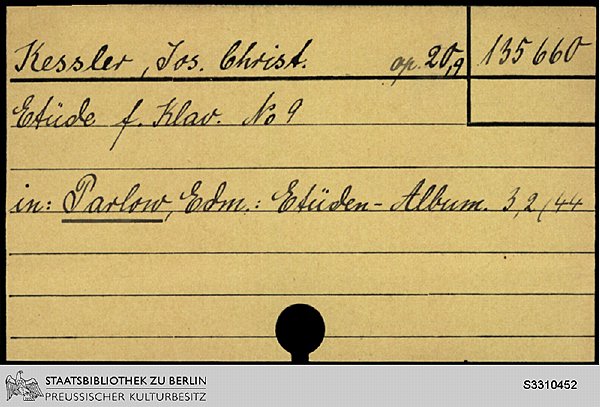 Kessler, Jos. Christ. op. 20,9 135 660
Etüde f. Klav. No 9
in: Parlow, Edm.: Etüden-Album. 3,2/44
STAATSBIBLIOTHEK ZU BERLIN
PREUSSISCHER KULTURBESITZ
S3310452